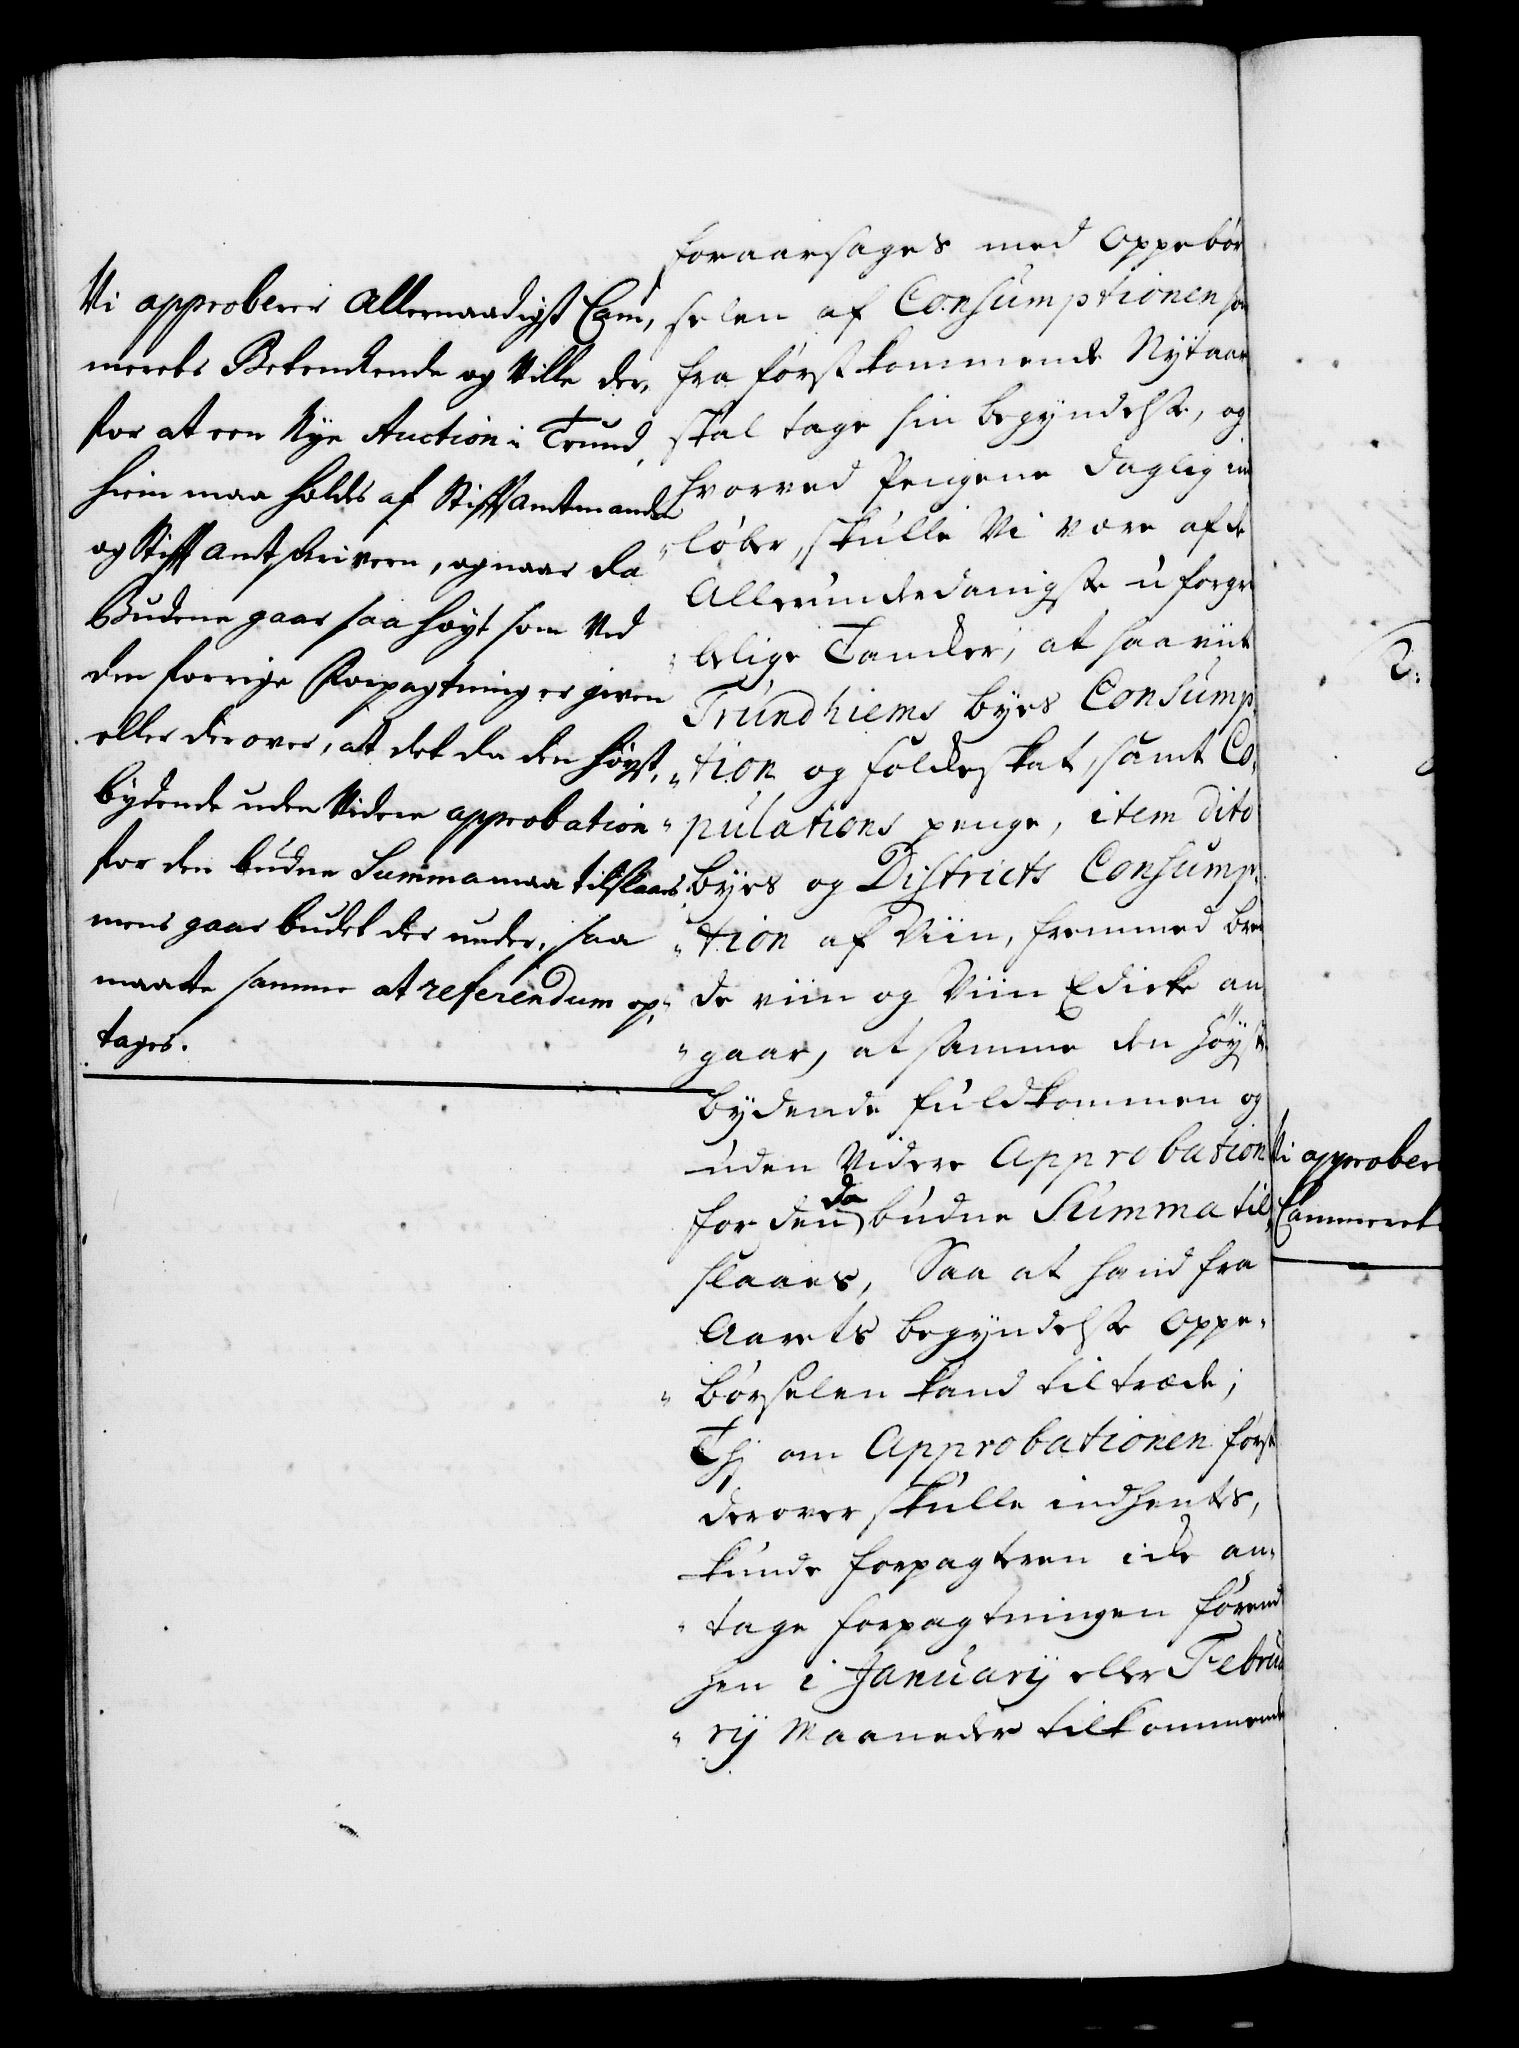 Vi approberer Allernaadigst Cam,
merets Betenckende og Ville der,
for at een Nye Auction i Trund,
hiem maa holdes af Stifftamtmanden
og Stifft Amtskriveren, og naar da
Budene gaar saa høyt som Ved
den forrige Forpagtning er given
eller derover, at det da den høyst,
bydende uden Videre approbation
for den budne Summa maa tilslaaes,
mens gaar budet der under, saa
maatte samme at referendum op,
tages.
foraarsages med Oppebør
selen af Consumptionen som
fra først kommende Nytaar
skal tage sin begyndelse, og
hvorved Pengene daglig ind
løber, skulle Vi være af de
Allerunderdanigste uforgri
belige Tancker, at saa viit
Trundhiems Byes Consump
tion og folckeskat, samt Co,
pulations penge, item dito
Byes og Districts Consump,
tion af Viin, fremmed bren
de viin og Viin Edicke an
gaar, at samme den høyst
bydende fuldkommen og
uden Videre Approbation
for den da budne Summa til
slaaes, Saa at hand fra
Aarets begyndelse Oppe,
børselen kand tiltræde;
Thj om Approbationen først
derover skulle indhentes,
kunde forpagteren icke an,
tage forpagtningen førend
hen i Januarij eller Februa
rij Maaneder tilkommende
Vi approber
Cammeret